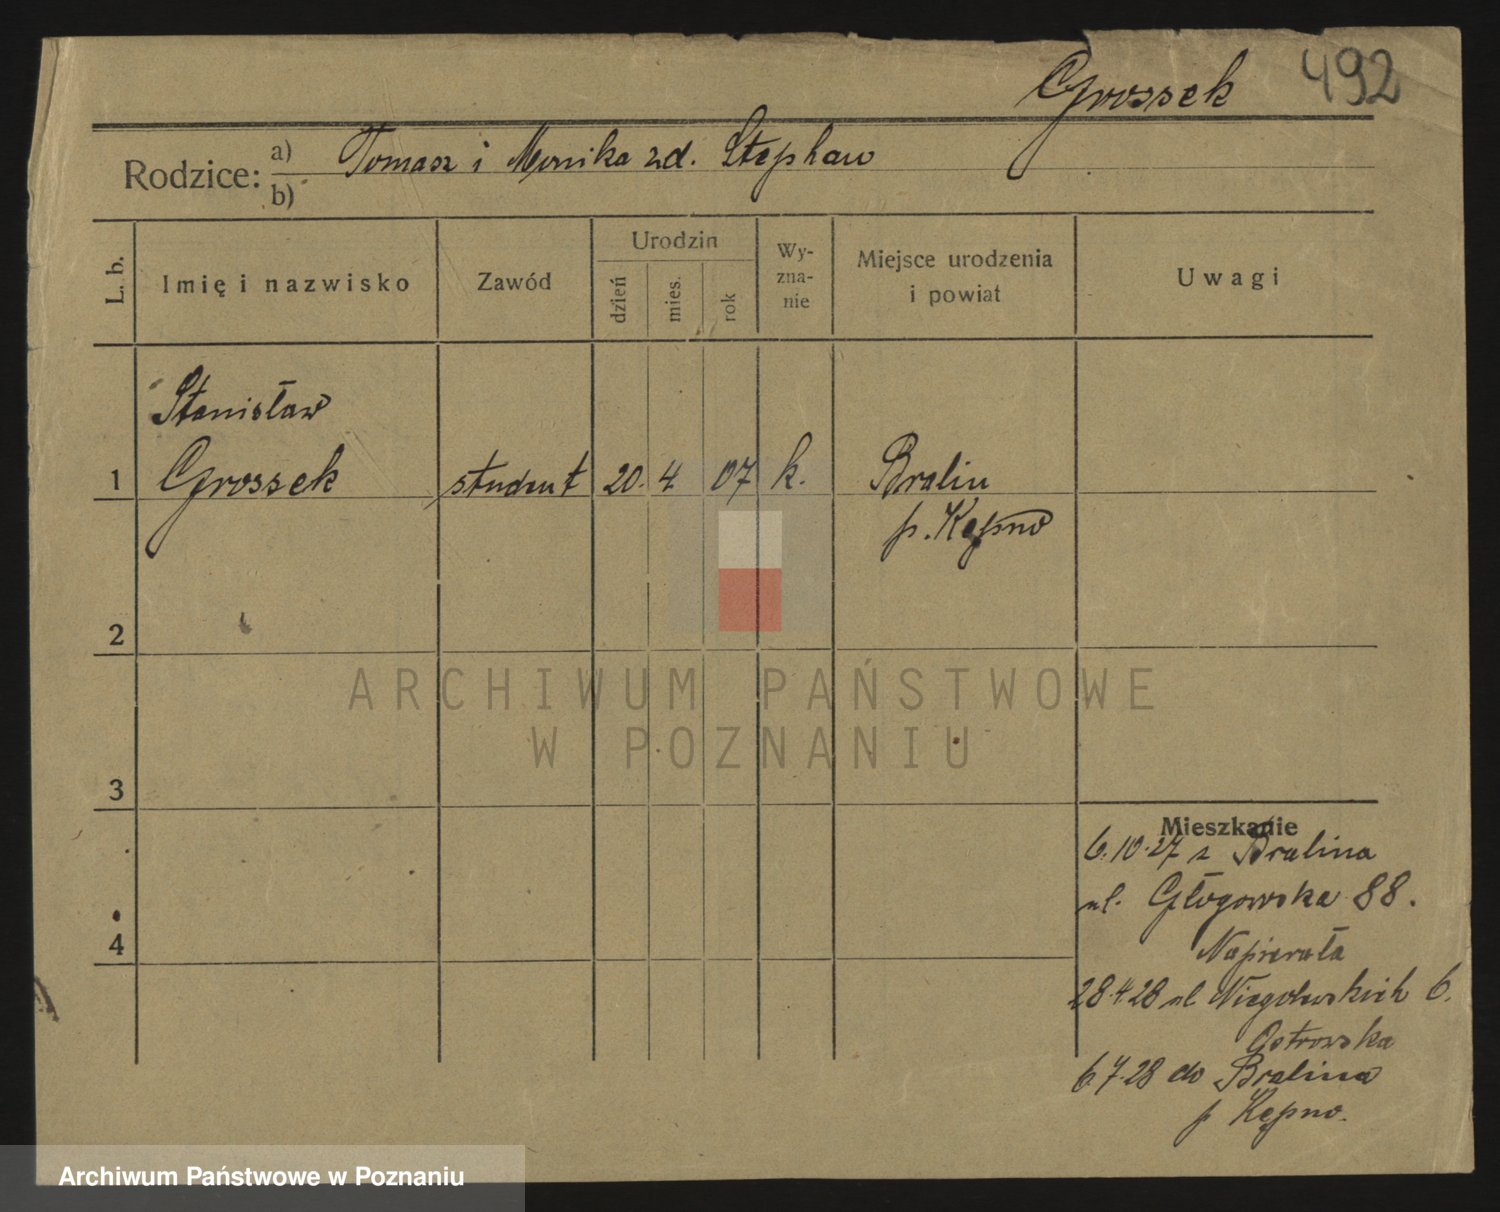 Grossek 492
Rodzice: a) Tomasz i Monika zd. Stephan
b)
L. b.
Imię i nazwisko
Zawód
Urodzin
dzień
mies.
rok
Wy-
zna-
nie
Miejsce urodzenia
i powiat
Uwagi
Stanisław
1 Grossek student 20. 4. 07 k. Bralin
p. Kępno
2
ARCHIWUM PAŃSTWOWE
W POZNANIU
3
Mieszkanie
6.10.27 z Bralina
ul. Głogowska 88.
4
Napierała
28.4.28 ul Niegolewskich 6.
Ostrowska
6.7.28 do Bralina
p Kępno.
Archiwum Państwowe w Poznaniu